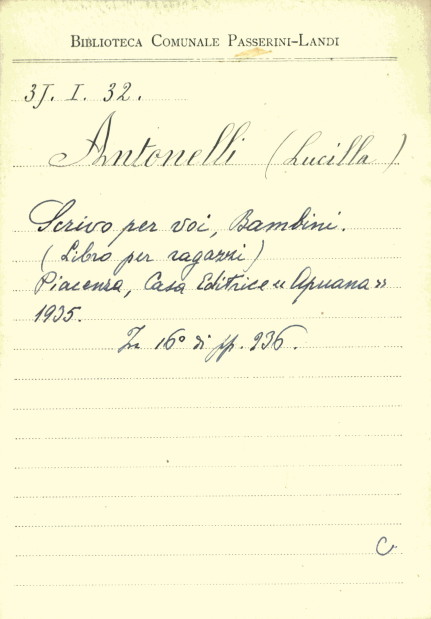 BIBLIOTECA COMUNALE PASSERINI-LANDI
3J. I. 32.
Antonelli (Lucilla)
Scrivo per voi, Bambini.
(Libro per ragazzi)
Piacenza, Casa Editrice "Apuana"
1935.
In 16° di pp. 236.
C